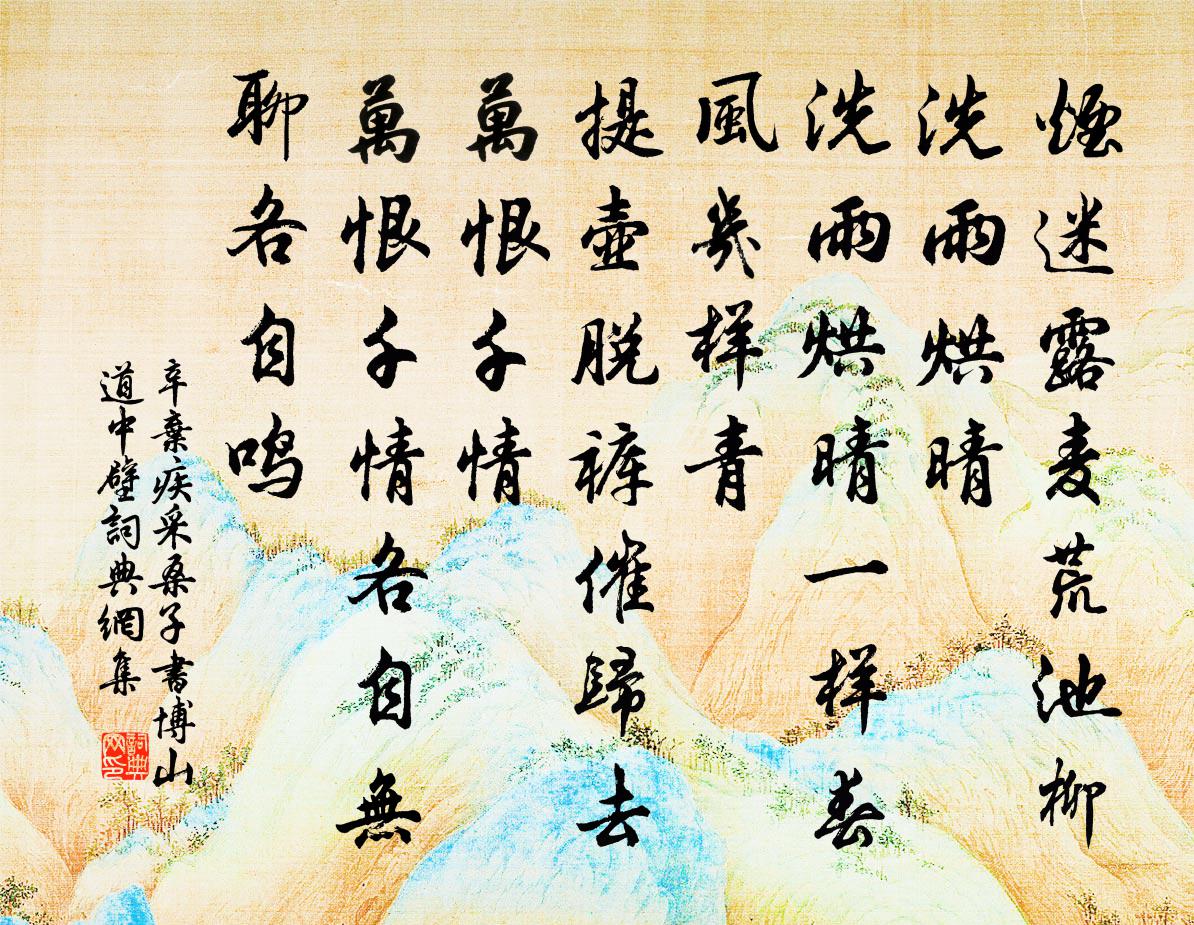 煙迷露麦荒池柳
洗雨烘晴
洗雨烘晴一样春
風幾样青
提壺脱裤催歸去
萬恨千情
萬恨千情各自無
聊各自鸣
辛棄疾采桑子書博山
道中壁詞典網集
詞典网印